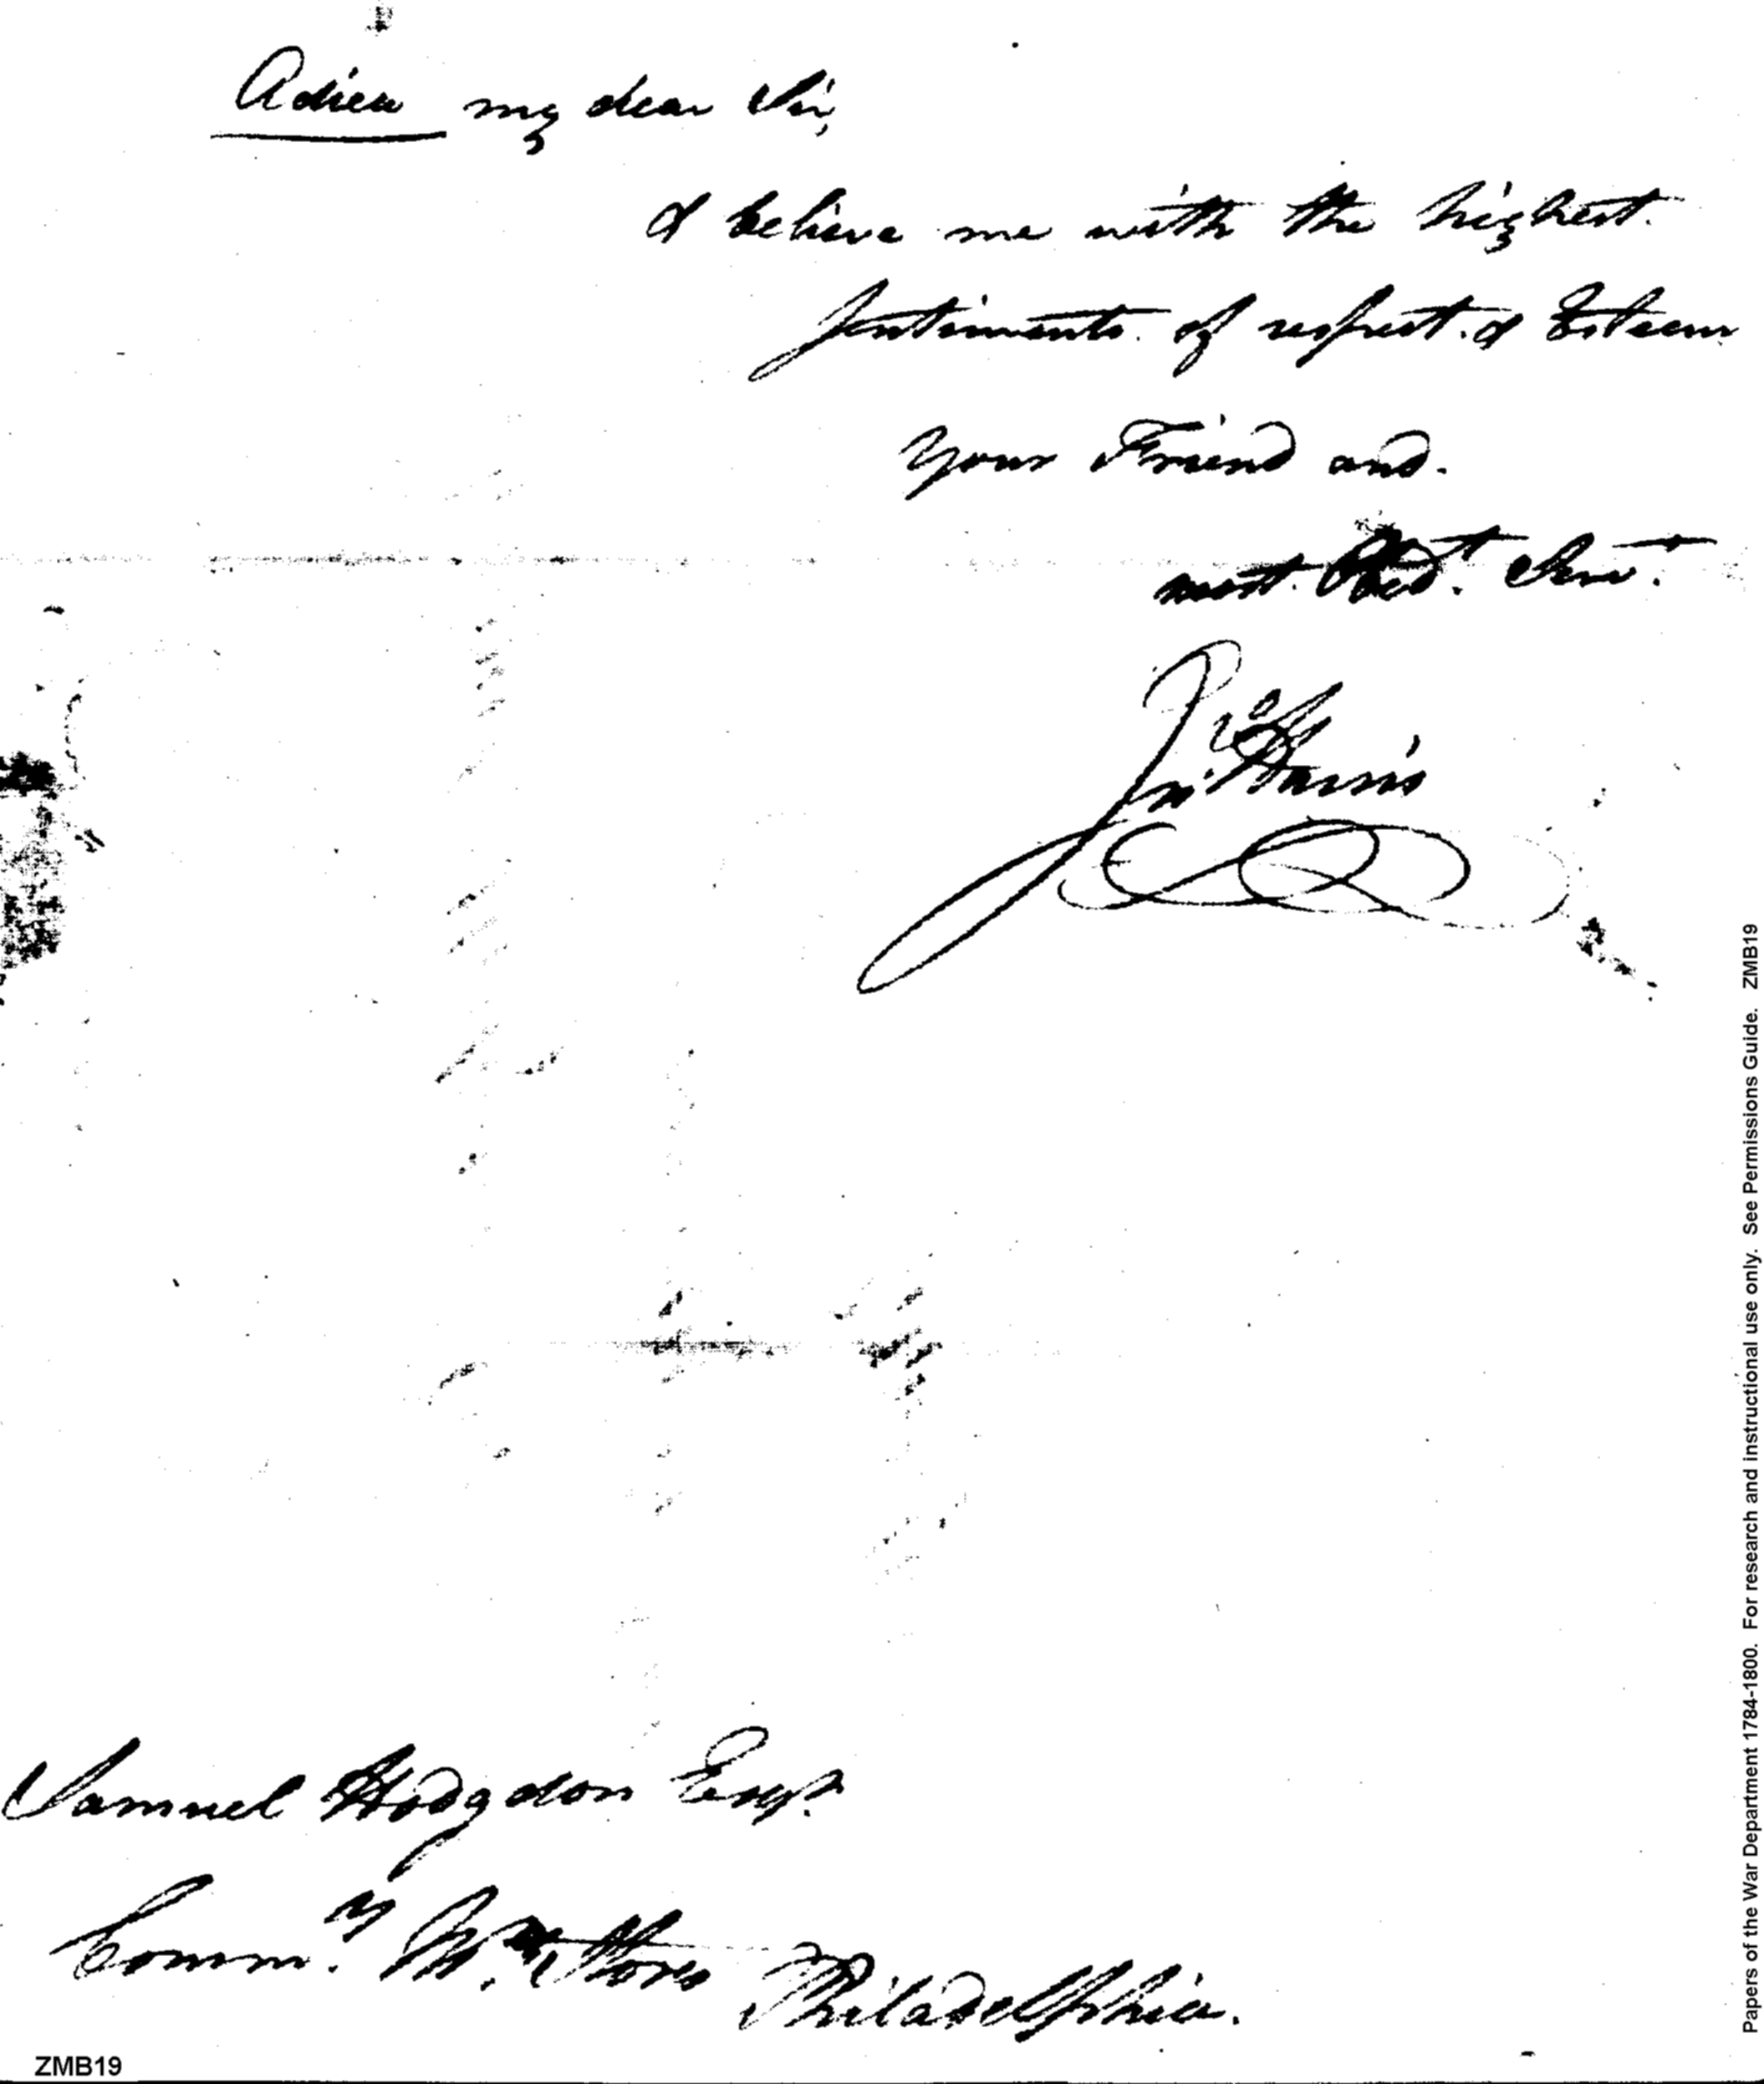 Adieu my dear Sir,
& believe me with the highest
sentiments of respect & Esteem
Your Friend and
most Obdt. Serv.t
Jn.o Harris
Samuel Hodgdon Esqr.
Comm.y M. Stores Philadelphia.
ZMB19
Papers of the War Department 1784-1800. For research and instructional use only. See Permissions Guide. ZMB19